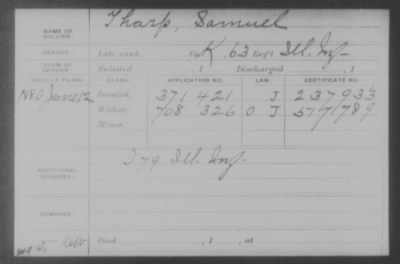 NAME OF SOLDIER: Tharp, Samuel
SERVICE: Late rank, Co. K, 63 Reg't Ill. Inf.
TERM OF SERVICE: Enlisted , 1 Discharged , 1
DATE OF FILING. CLASS. APPLICATION NO. LAW. CERTIFICATE NO.
1880 June 12 Invalid, 371 421 J 237933
Widow, 708 326 O J 517789
Minor,
ADDITIONAL SERVICES: Ill. Inf.
REMARKS:
Died , 1 , at